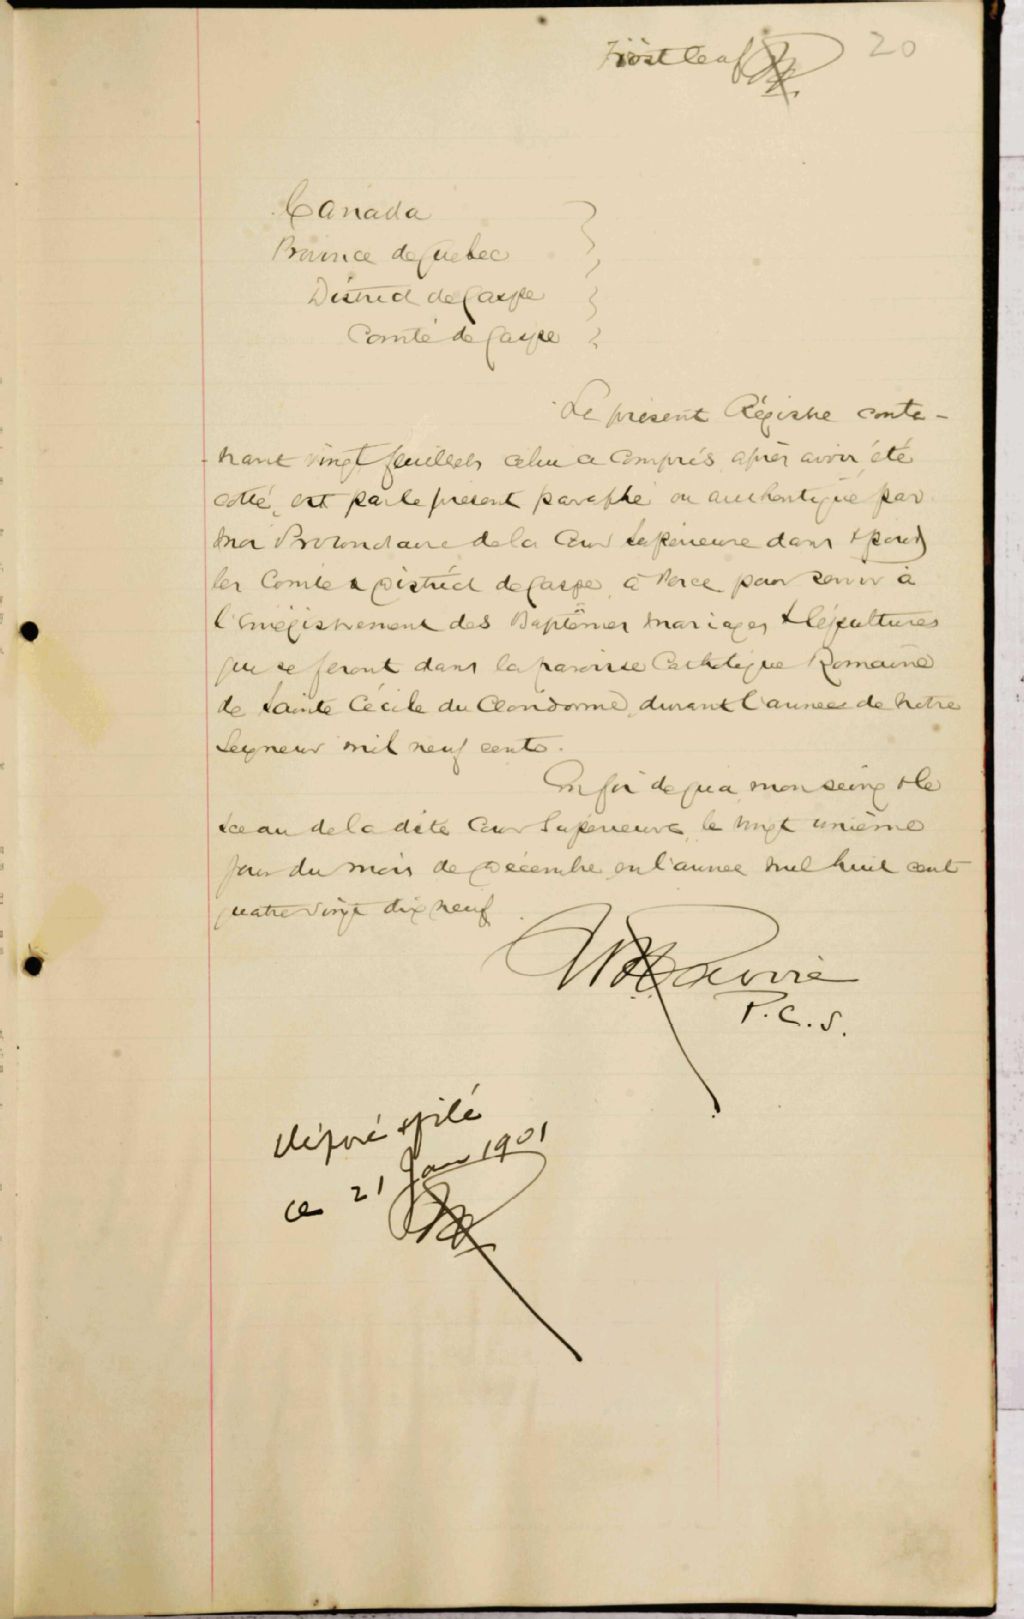 First leaf 20
Canada
Province de Quebec
District de Gaspe
Comté de Gaspe
Le présent Régistre conte-
nant vingt feuillets celui ci compris, après avoir été
cotté, est par le présent paraphé ou authentiqué par
moi Protonotaire de la Cour Supérieure dans & pour
les Comté & District de Gaspe, à Percé pour servir à
l'Enrégistrement des Baptêmes Mariages & Sépultures
qui se feront dans la paroisse Catholique Romaine
de Sainte Cécile du Cloridorme, durant l'année de Notre
Seigneur mil neuf cents.
En foi de quoi, mon seing & le
sceau de la dite Cour Supérieure, le vingt unième
jour du mois de Décembre en l'année mil huit cent
quatre vingt dix neuf.
P.C.S.
déposé & filé
ce 21 Jan 1901